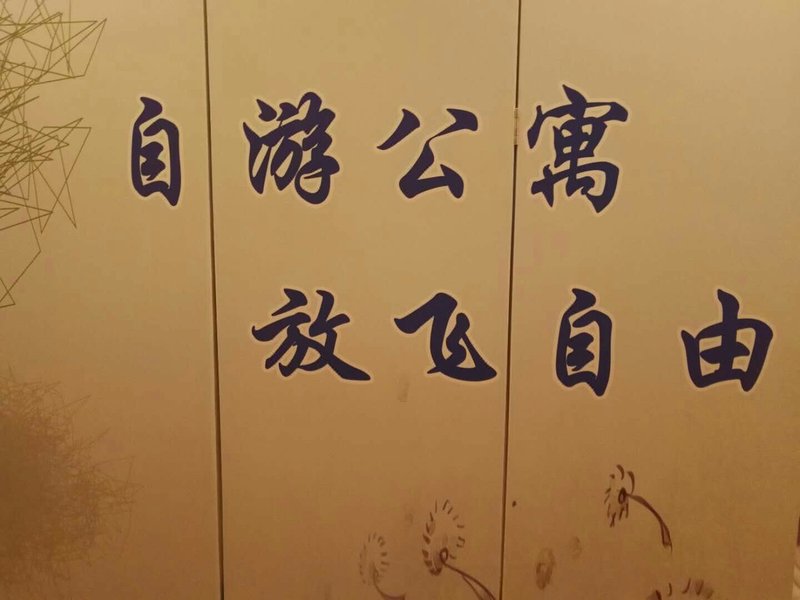 自游公寓
放飞自由